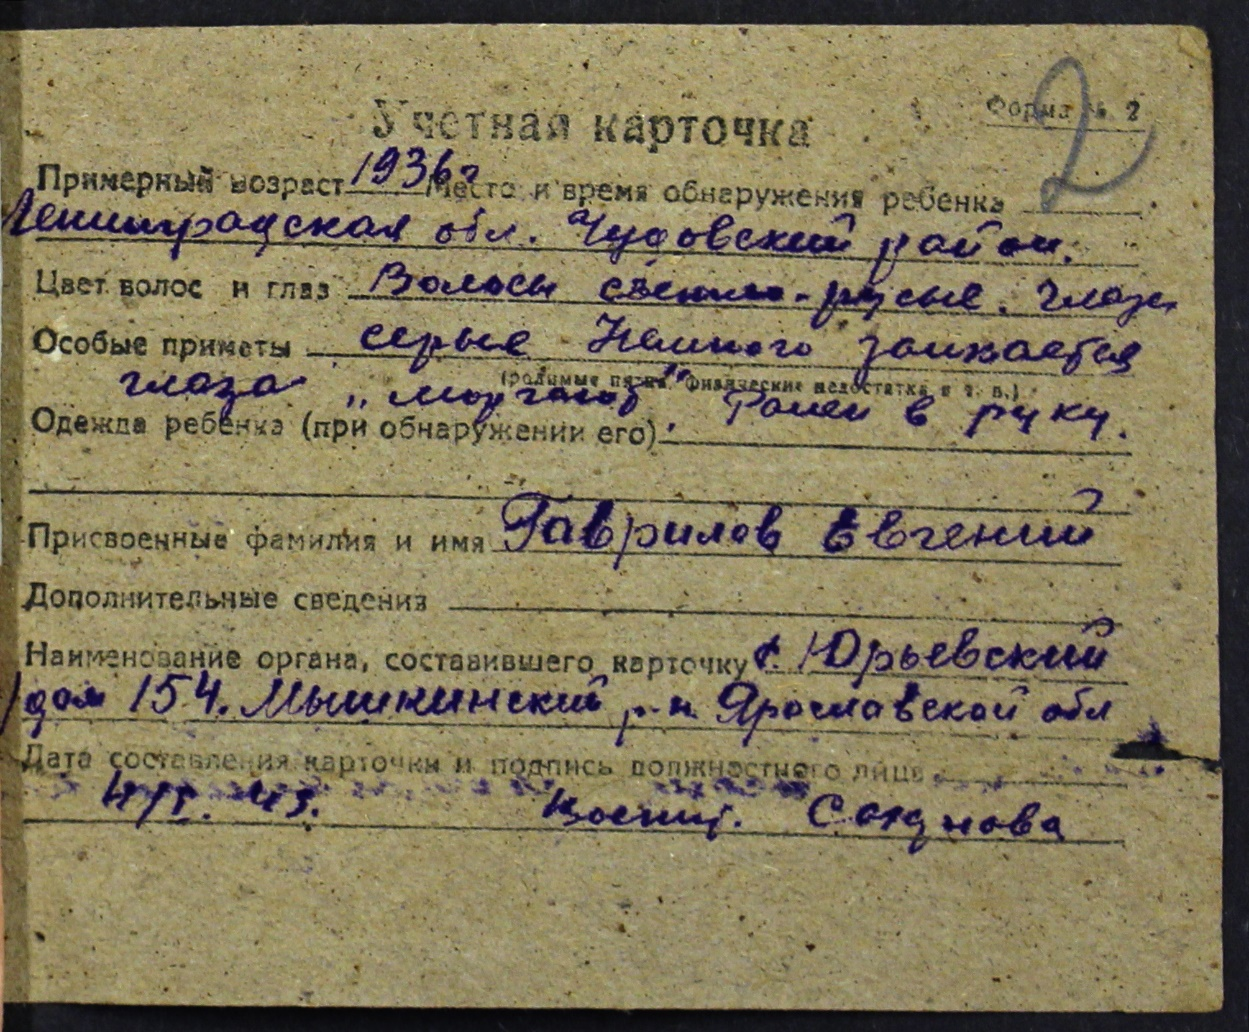 2
Форма № 2
Учетная карточка
Примерный возраст 1936 г Место и время обнаружения ребенка
Ленинградская обл. Чудовский район.
Цвет волос и глаз Волосы светло-русые. Глаза
Особые приметы серые Немного заикается
(родимые пятна, физические недостатки и т. п.)
глаза „моргают" Ранен в руку.
Одежда ребенка (при обнаружении его)
Присвоенные фамилия и имя Гаврилов Евгений
Дополнительные сведения
Наименование органа, составившего карточку Юрьевский
дом 154. Мышкинский р-н Ярославской обл
Дата составления карточки и подпись должностного лица
45. Воспит.